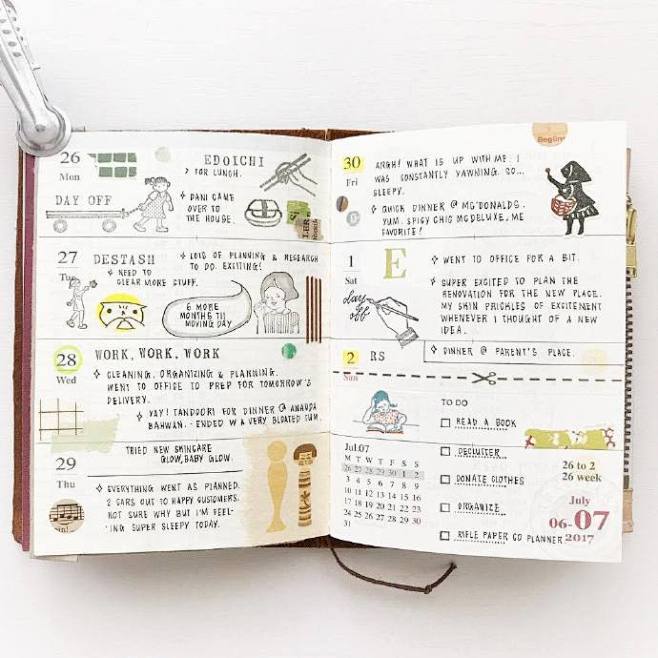 26
Mon
EDOICHI
FOR LUNCH.
DAY OFF
DANI CAME
OVER TO
THE HOUSE.
27
Tue
DESTASH
NEED TO
CLEAR MORE STUFF.
LOTS OF PLANNING & RESEARCH
TO DO. EXCITING!
6 MORE
MONTHS TIL
MOVING DAY
28
Wed
WORK, WORK, WORK
CLEANING, ORGANIZING & PLANNING.
WENT TO OFFICE TO PREP FOR TOMORROW'S
DELIVERY.
YAY! TANDOORI FOR DINNER @ AMANDA
BAHWAN. ENDED W A VERY BLOATED TUM.
29
Thu
TRIED NEW SKINCARE
GLOW, BABY GLOW.
EVERYTHING WENT AS PLANNED.
2 CARS OUT TO HAPPY CUSTOMERS.
NOT SURE WHY BUT I'M FEEL-
ING SUPER SLEEPY TODAY.
Begin
30
Fri
ARGH! WHAT IS UP WITH ME. I
WAS CONSTANTLY YAWNING. SO...
SLEEPY.
QUICK DINNER @ MC'DONALDS.
YUM. SPICY CHIC MCDELUXE. ME
FAVORITE!
1
Sat
E
day
off
WENT TO OFFICE FOR A BIT.
SUPER EXCITED TO PLAN THE
RENOVATION FOR THE NEW PLACE.
MY SKIN PRICKLES OF EXCITEMENT
WHENEVER I THOUGHT OF A NEW
IDEA.
2
Sun
RS
DINNER @ PARENT'S PLACE.
TO DO
READ A BOOK
DECLUTTER
DONATE CLOTHES
ORGANIZE
RIFLE PAPER CO PLANNER
Jul.07
M T W T F S S
26 27 28 29 30 1 2
3 4 5 6 7 8 9
10 11 12 13 14 15 16
17 18 19 20 21 22 23
24 25 26 27 28 29 30
31
26 to 2
26 week
July
06-07
2017